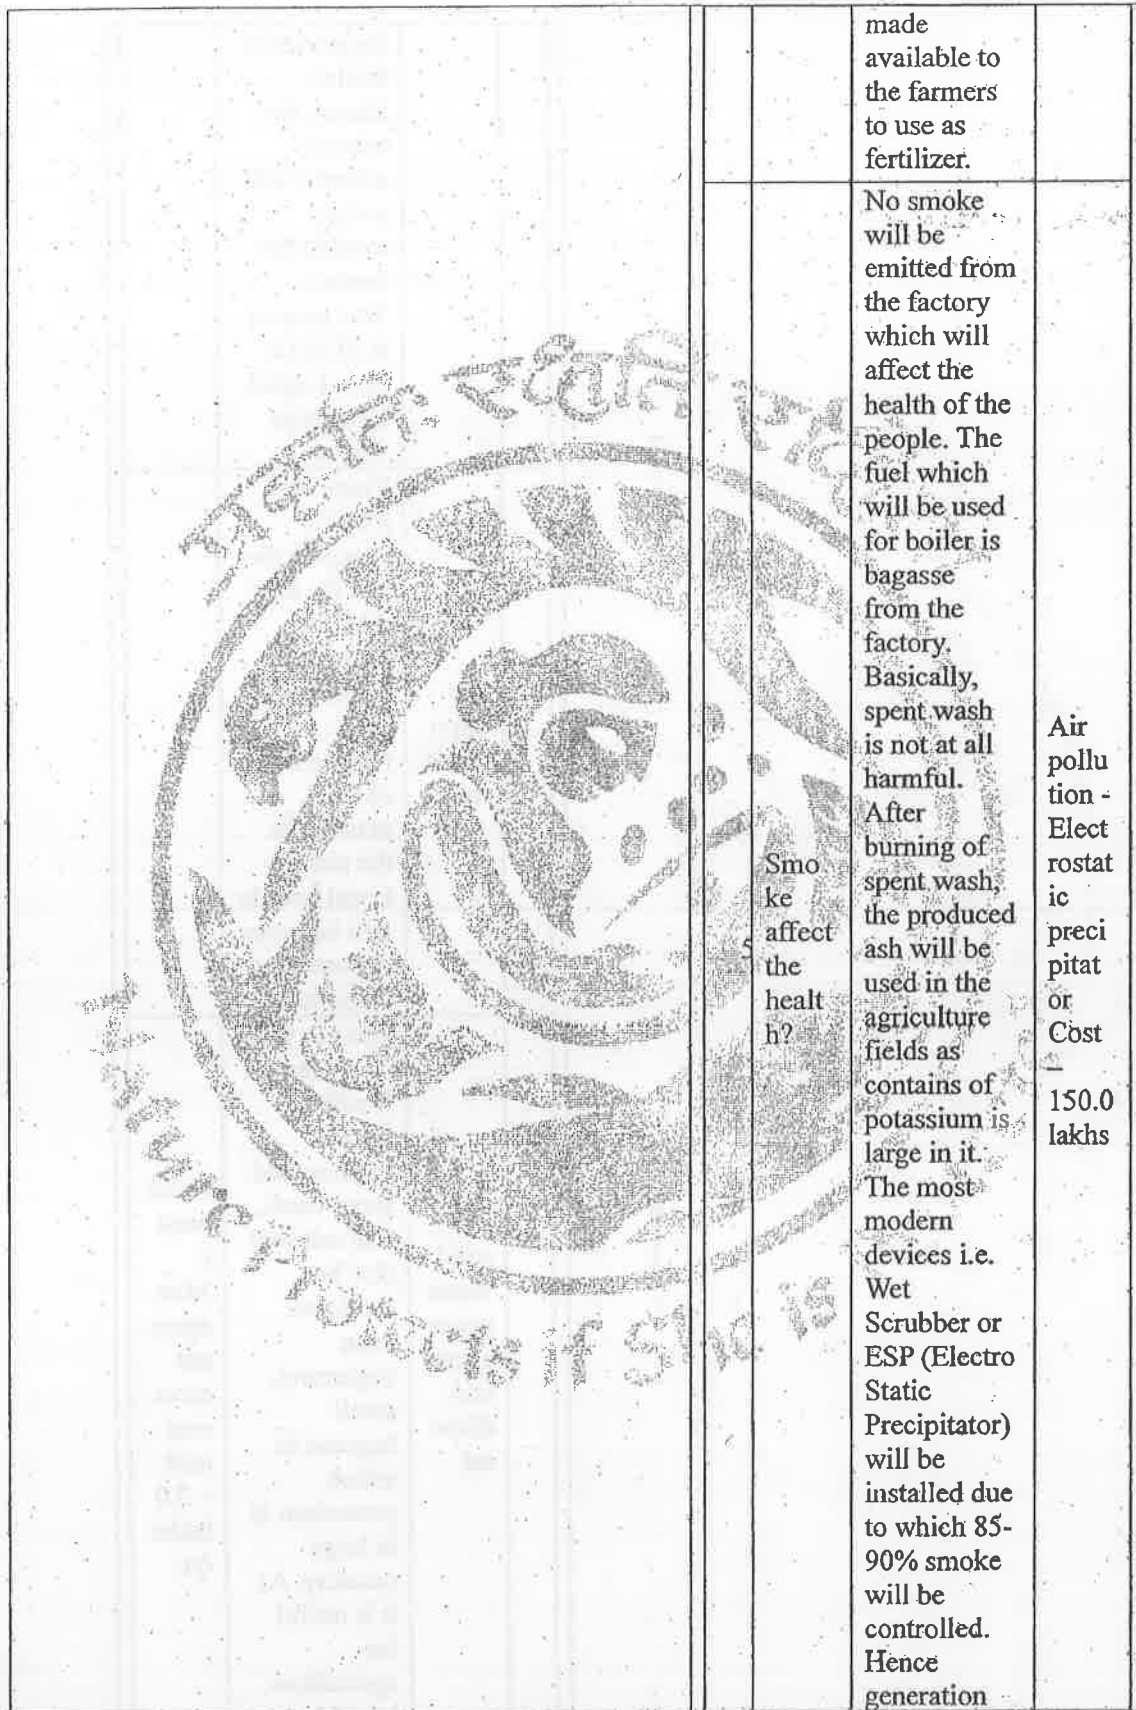 made
available to
the farmers
to use as
fertilizer.
5
Smo
ke
affect
the
healt
h?
No smoke
will be
emitted from
the factory
which will
affect the
health of the
people. The
fuel which
will be used
for boiler is
bagasse
from the
factory.
Basically,
spent wash
is not at all
harmful.
After
burning of
spent wash,
the produced
ash will be
used in the
agriculture
fields as
contains of
potassium is
large in it.
The most
modern
devices i.e.
Wet
Scrubber or
ESP (Electro
Static
Precipitator)
will be
installed due
to which 85-
90% smoke
will be
controlled.
Hence
generation
Air
pollu
tion -
Elect
rostat
ic
preci
pitat
or
Cost
–
150.0
lakhs
प्रकृति: रक्षति
Nature Protects if She is